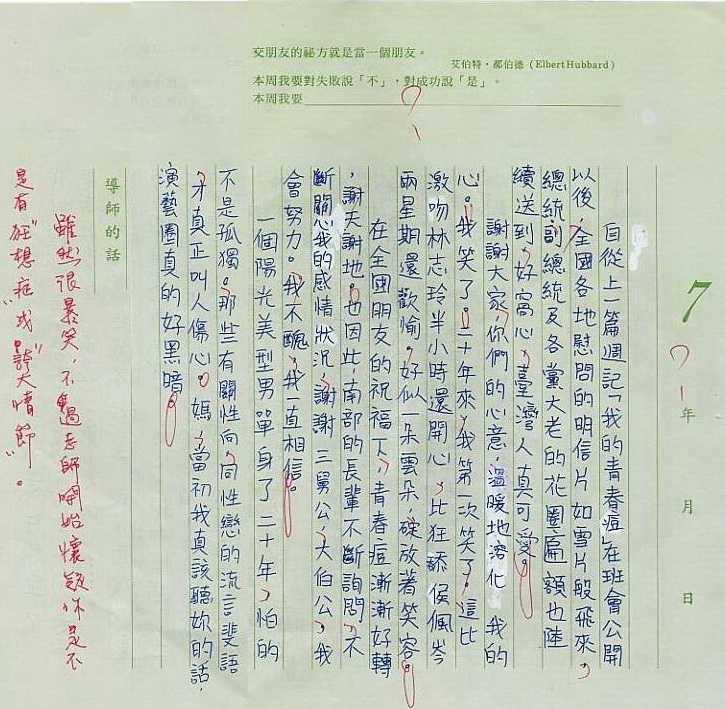 交朋友的祕方就是當一個朋友。
艾伯特・郝伯德(Elbert Hubbard)
本周我要對失敗說「不」,對成功說「是」。
本周我要
7
年 月 日
自從上一篇週記「我的青春痘」在班會公開
以後,全國各地慰問的明信片如雪片般飛來,
總統、副總統及各黨大老的花圈匾額也陸
續送到,好窩心,臺灣人真可愛。
謝謝大家,你們的心意,溫暖地溶化,我的
心。我笑了。二十年來,我第一次笑了。這比
激吻林志玲半小時還開心,比狂舔侯佩岑
兩星期還歡愉。好似一朵雲朵,碇放著笑容。
在全國朋友的祝福下,青春痘漸漸好轉
,謝天謝地。也因此,南部的長輩不斷詢問,不
斷關心我的感情狀況,謝謝三舅公,大伯公,我
會努力。我不醜,我一直相信。
一個陽光美型男單身了二十年,怕的
不是孤獨。那些有關性向,同性戀的流言斐語
,才真正叫人傷心。媽,當初我真該聽妳的話,
演藝圈真的好黑暗。
導師的話
雖然很暴笑,不過老師開始懷疑你是不
是有"妄想症"或"誇大情節"。